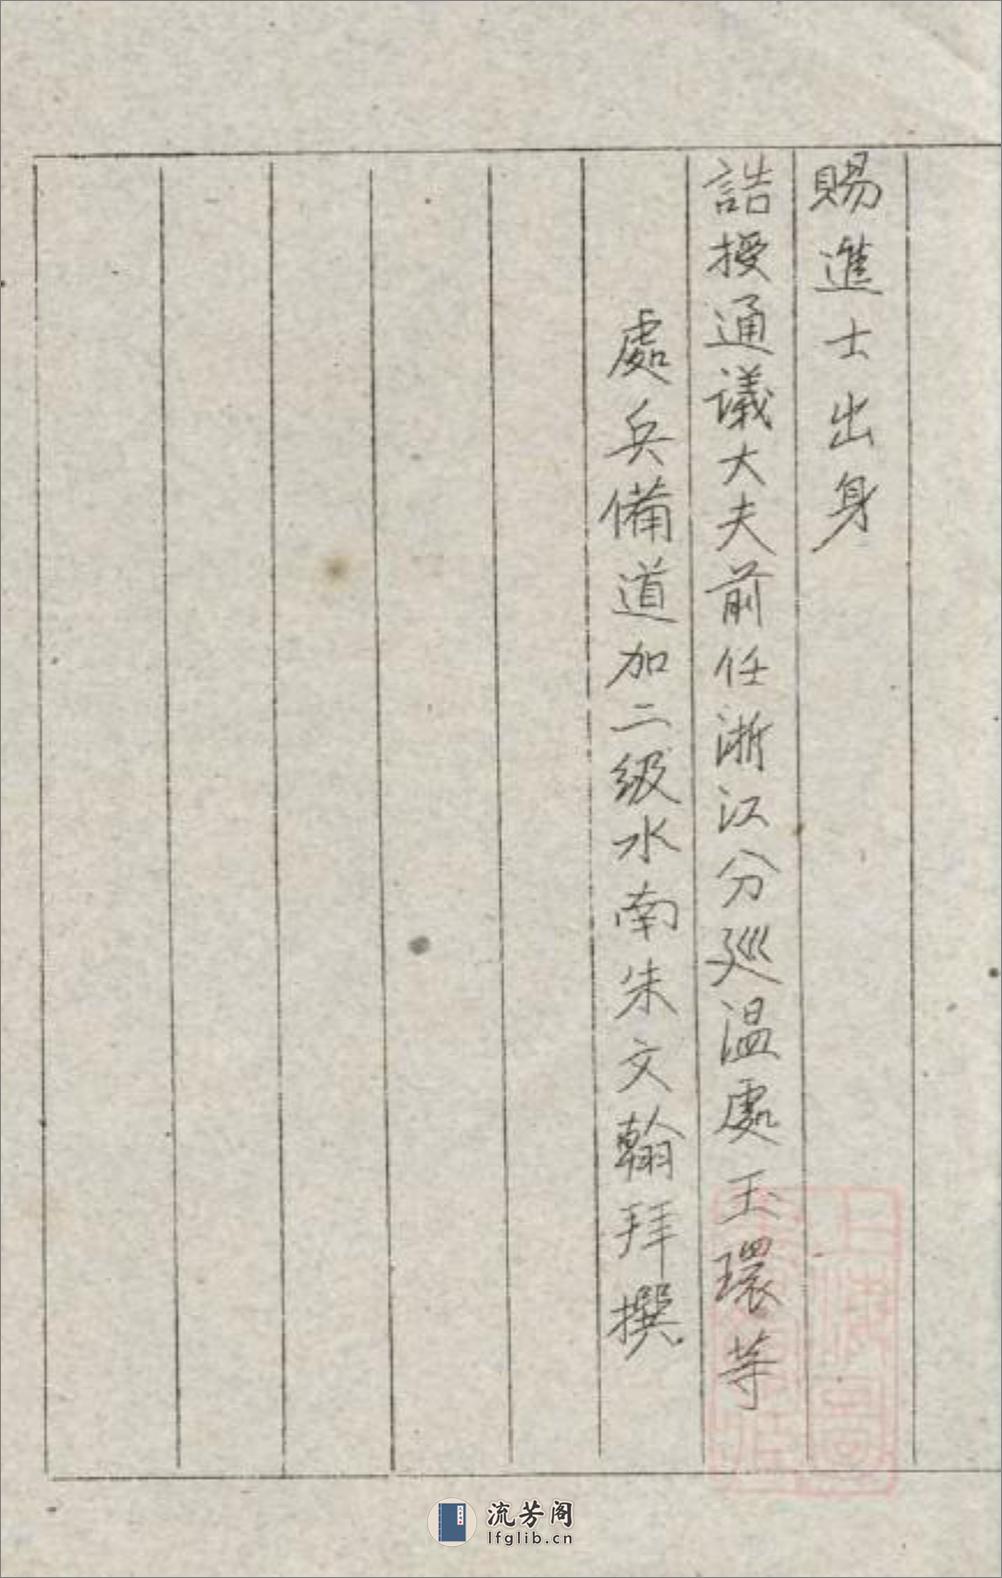 賜進士出身
誥授通議大夫前任浙江分廵温處玉環等
處兵備道加二級水南朱文翰拜撰
流芳阁
lfglib.cn